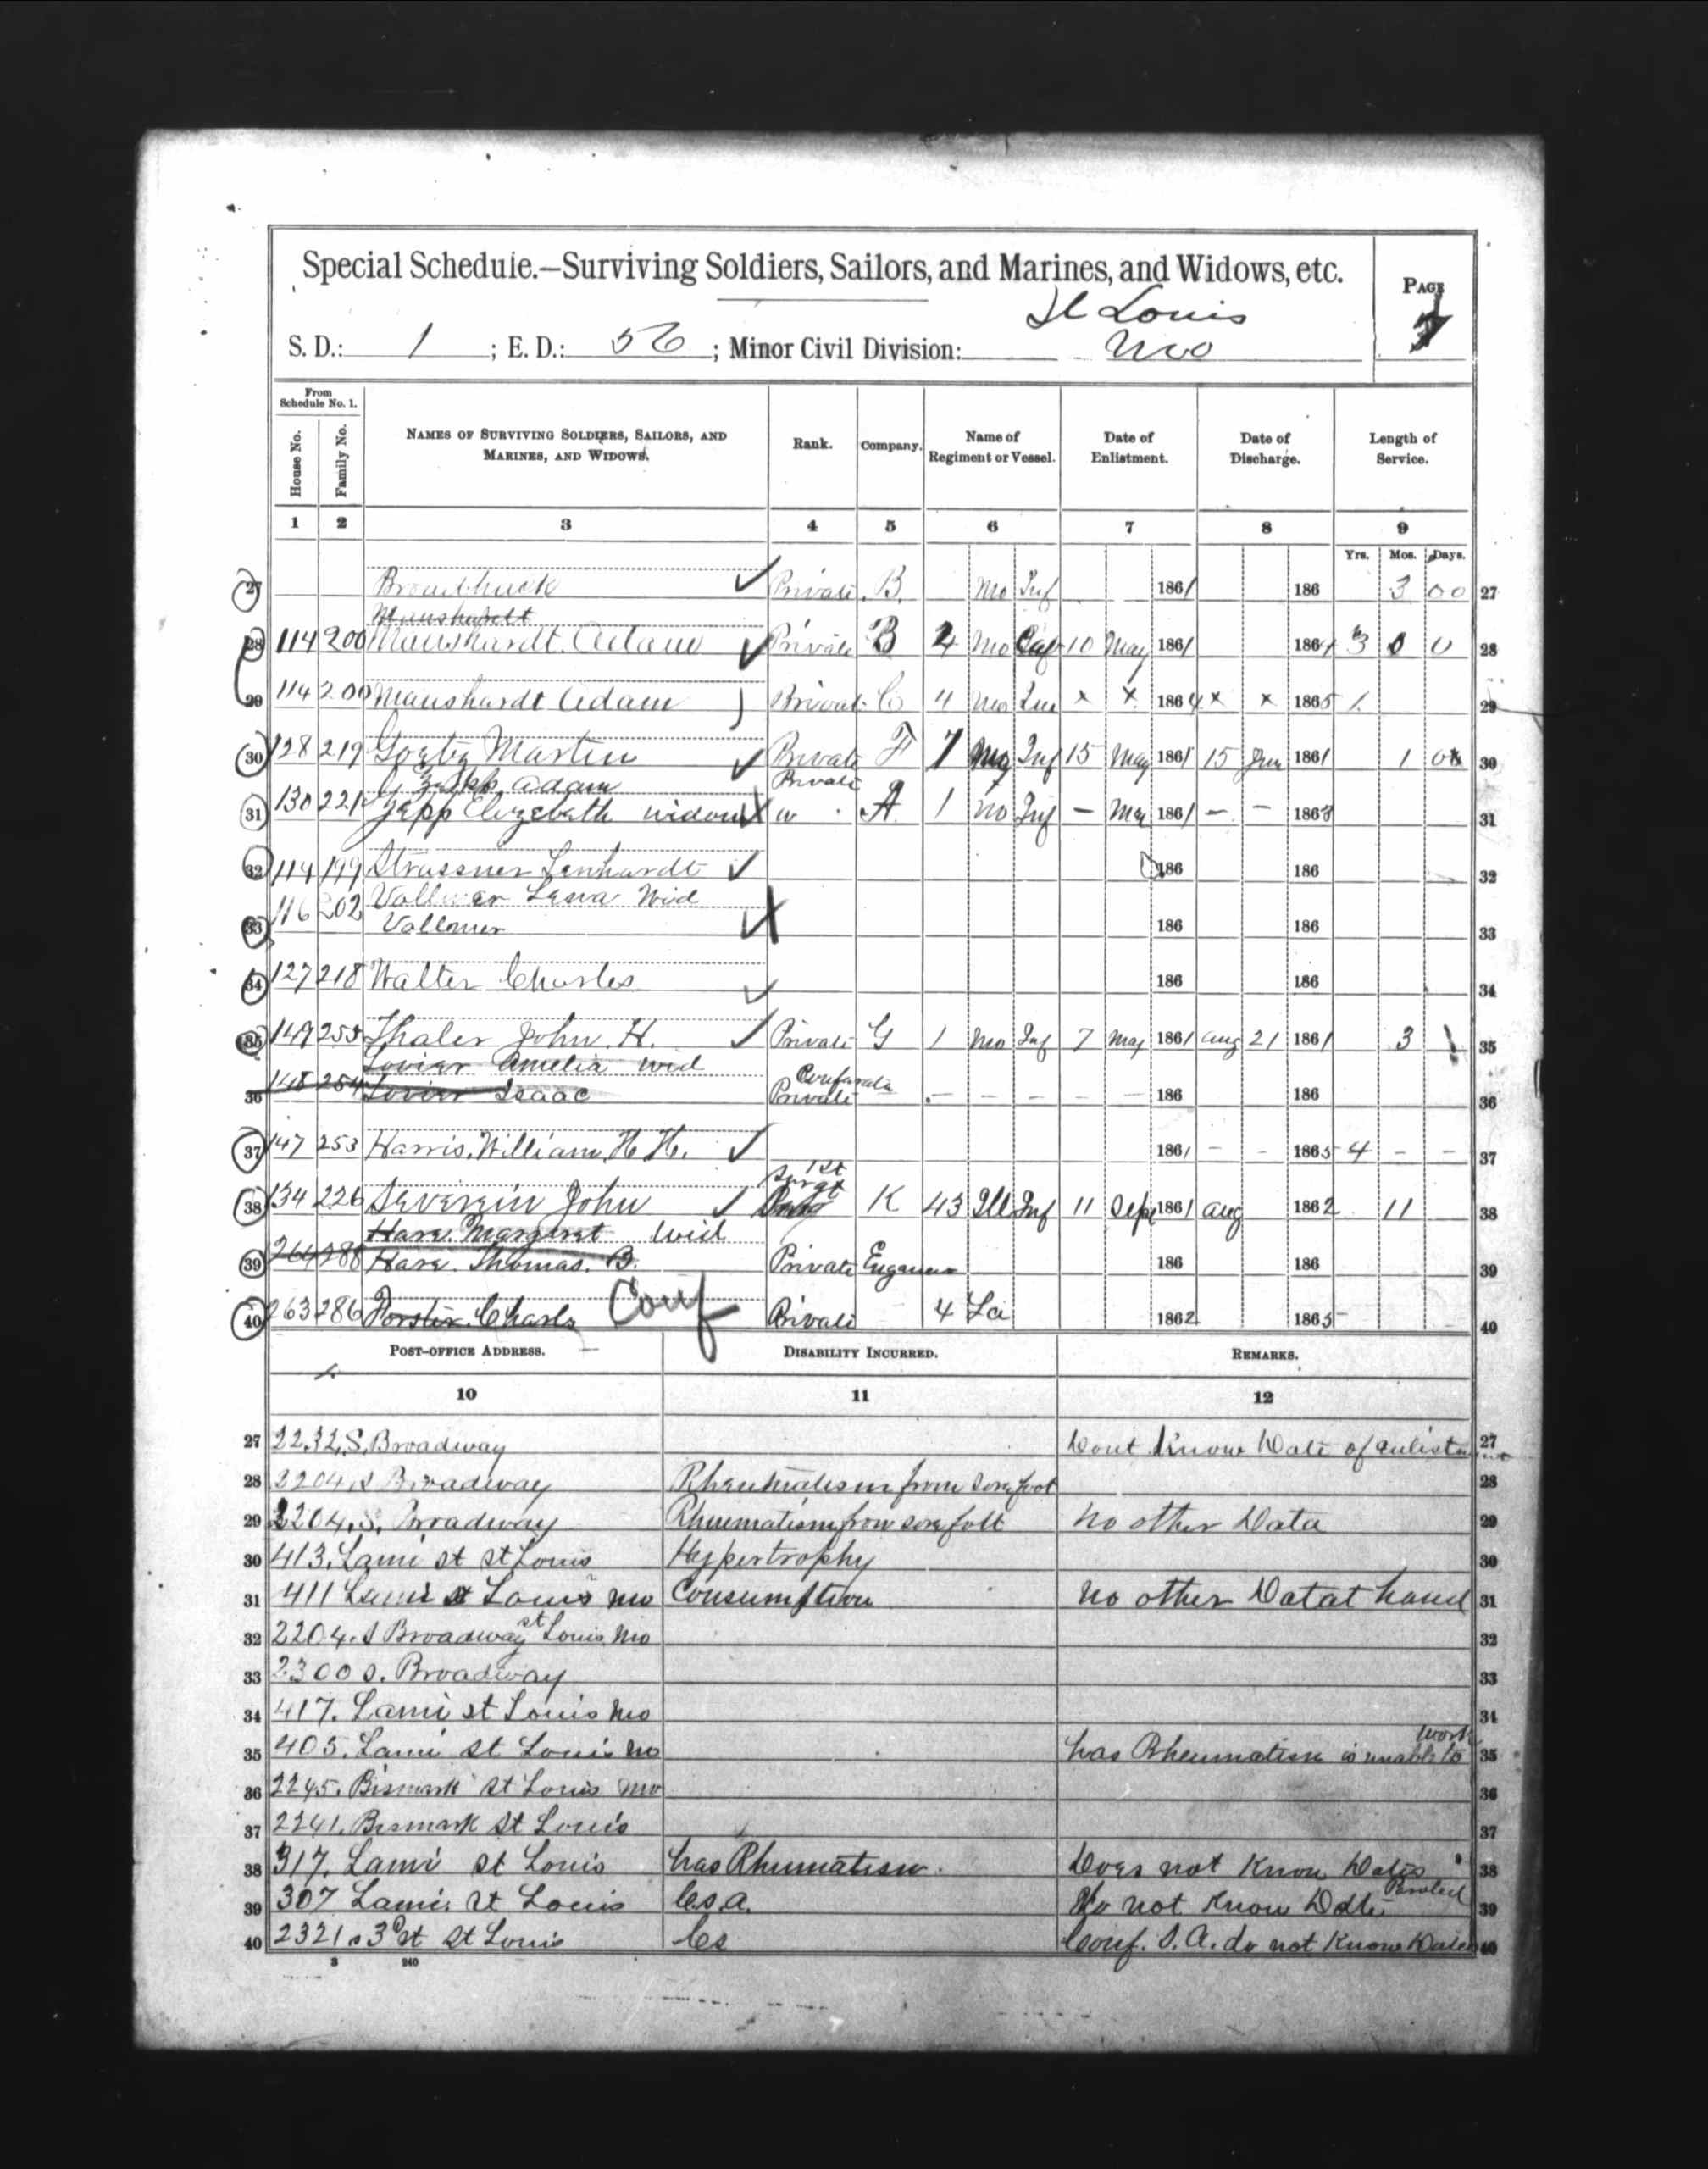 Special Schedule.—Surviving Soldiers, Sailors, and Marines, and Widows, etc.
PAGE
St Louis
S. D.: 1 ; E. D.: 56 ; Minor Civil Division: Mo
From Schedule No. 1.
House No. Family No. NAMES OF SURVIVING SOLDIERS, SAILORS, AND MARINES, AND WIDOWS. Rank. Company. Name of Regiment or Vessel. Date of Enlistment. Date of Discharge. Length of Service.
1 2 3 4 5 6 7 8 9
Yrs. Mos. Days.
27 Private B. Mo Inf 1861 186 3 00 27
Manshardt
28 114 200 Manshardt Adam Private B 2 Mo 10 May 1861 1864 3 0 0 28
29 114 200 Manshardt Adam Privat C 4 Mo x x 1864 x x 1865 1 29
30 128 219 Goetz Martin Private F 7 Mo Inf 15 May 1861 15 1861 1 30
Zepp Adam Private
31 130 221 Zepp Elizebath widow w A 1 Mo Inf – May 1861 – – 1863 31
32 114 199 Strassner Lenhardt 186 186 32
116 202 Vollmer Lena Wid
33 Vollmer 186 186 33
34 127 218 Walter Charles 186 186 34
35 149 255 Thaler John H. Private G 1 Mo Inf 7 May 1861 Aug 21 1861 3 35
Amelia wid
36 148 254 Isaac Private – – – – – 186 186 36
37 147 253 Harris William H. H. 1861 – – 1865 4 – – 37
1st
38 134 226 Severein John K 43 Ill Inf 11 Sept 1861 Aug 1862 11 38
Hare Margaret Wid
39 264 288 Hare Thomas. B. Private 186 186 39
40 263 286 Charls Conf Private 4 La 1862 1865 40
POST-OFFICE ADDRESS. DISABILITY INCURRED. REMARKS.
10 11 12
27 2232 S. Broadway Dont Know Date of 27
28 2204 S Broadway Rheumatism from Sore foot 28
29 2204. S. Broadway Rheumatism from sore No other Data 29
30 413. Lami st St Louis Hypertrophy 30
31 411 Lami st Louis Mo Consumption No other Datat hand 31
32 2204. S Broadway St Louis Mo 32
33 2300 S. Broadway 33
34 417. Lami st Louis Mo 34
work
35 405. Lami st Louis Mo has Rheumatism is unable to 35
36 2245. Bismark St Louis Mo 36
37 2241. Bismark St Louis 37
38 317. Lami St Louis has Rhumatism. Does not Know Dates 38
39 307 Lami. St Louis C.s.a. Do not Know 39
40 2321 s 3d st St Louis Cs Conf. S. A. do not Know Dates 40
3 240